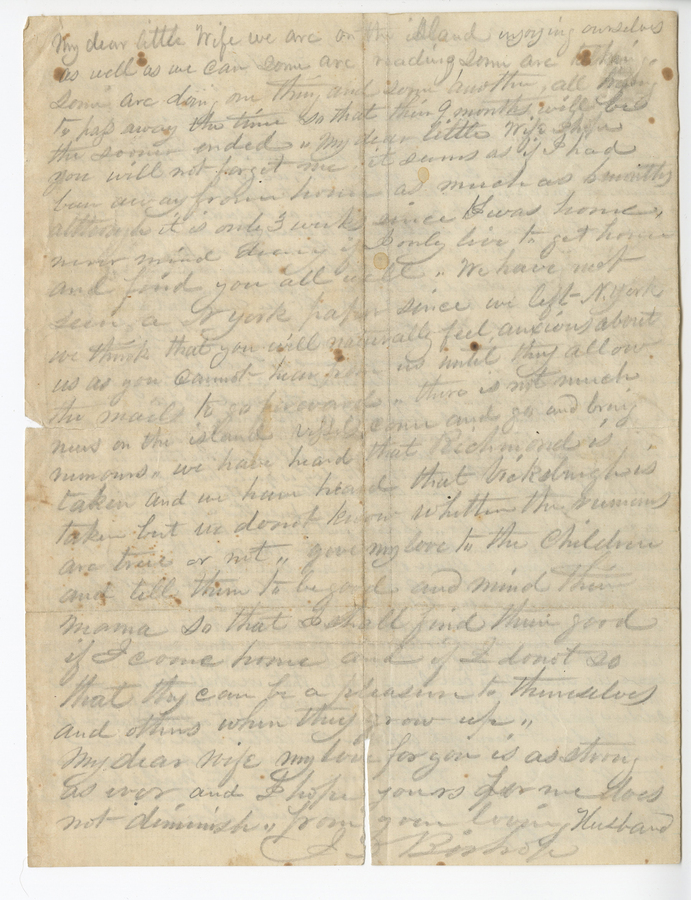 My dear little Wife we are on the island injoying ourselves
as well as we can some are reading some are talking
some are doing one thing and some another, all trying
to pass away the time so that thin 9 months will be
the sooner ended " My dear little Wife I hope
you will not forget me, it seams as if I had
been away from home as much as 6 months
although it is only 3 weeks since I was home "
never mind deary if I only live to get home
and find you all well " We have not
seen a N York paper since we left N. York
we think that you will naturally feel anxious about
us as you cannot hear from us until they allow
the mails to go forward " there is not much
news on the island vessels come and go and bring
rumours " we have heard that Richmond is
taken and we have heard that Vicksburgh is
taken but we do not know whether the rumours
are true or not " give my love to the Children
and tell them to be good and mind their
Mama so that I shall find them good
if I come home and if I do not so
that they can be a pleasure to themselves
and others when they grow up "
My dear Wife my love for you is as strong
as ever and I hope yours for me does
not diminish " from your loving Husband
J Bishop